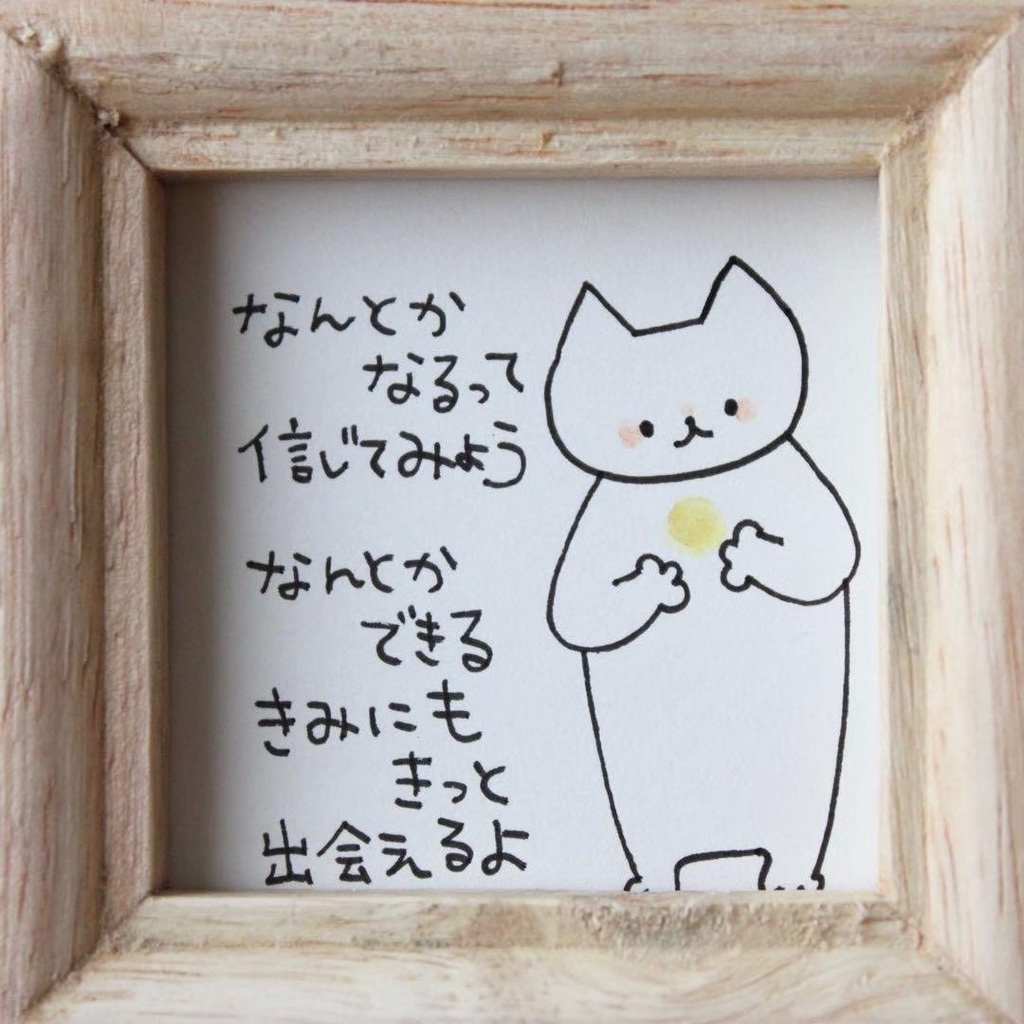 なんとか
なるって
信じてみよう
なんとか
できる
きみにも
きっと
出会えるよ